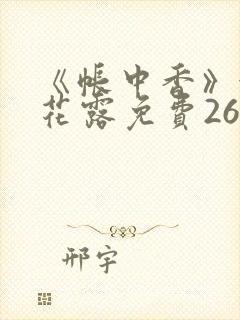 《帐中香》
花露免費26
邢宇